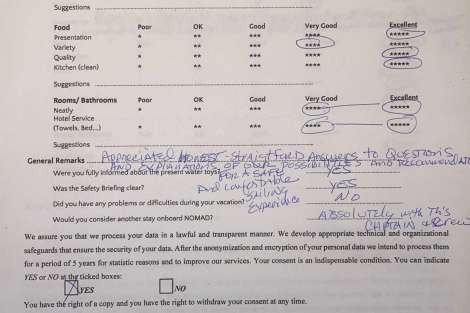 Suggestions
Food Poor OK Good Very Good Excellent
Presentation * ** *** **** *****
Variety * ** *** **** *****
Quality * ** *** **** *****
Kitchen (clean) * ** *** **** *****
Suggestions
Rooms/ Bathrooms Poor OK Good Very Good Excellent
Neatly * ** *** **** *****
Hotel Service
(Towels, Bed...) * ** *** **** *****
Suggestions
General Remarks Appreciated HONEST STRAIGTFORD Answers to QUESTIONS
AND EXPLANATIONS OF OUR POSSIBILITIES AND Recommendations
FOR A SAFE
Were you fully informed about the present water toys? YES
And comfortable
Was the Safety Briefing clear? sailing YES
Experience
Did you have any problems or difficulties during your vacation? NO
Would you consider another stay onboard NOMAD? ABSOLUTELY with This
CAPTAIN & crew
We assure you that we process your data in a lawful and transparent manner. We develop appropriate technical and organizational
safeguards that ensure the security of your data. After the anonymization and encryption of your personal data we intend to process them
for a period of 5 years for statistic reasons and to improve our services. Your consent is an indispensable condition. You can indicate
YES or NO at the ticked boxes:
YES NO
You have the right of a copy and you have the right to withdraw your consent at any time.